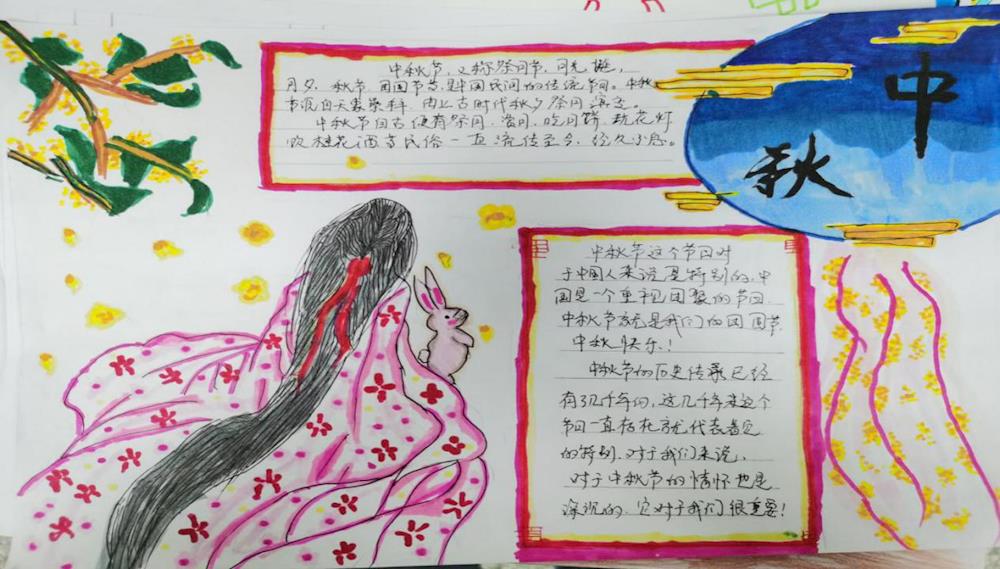 中秋节，又称祭月节、月光诞，
月夕、秋节、团圆节等，是中国民间的传统节日。中秋
节源自天象崇拜，由上古时代秋夕祭月演变。
中秋节自古便有祭月、赏月、吃月饼、玩花灯
饮桂花酒等民俗一直流传至今，经久不息。
中
秋
中秋节这个节日对
于中国人来说是特别的，中
国是一个重视团聚的节日
中秋节就是我们的团圆节
中秋快乐！
中秋节的历史传承已经
有了几千年的，这几千年来这个
节日一直存在就代表着它
的特别，对于我们来说，
对于中秋节的情怀也是
深沉的，它对于我们很重要！